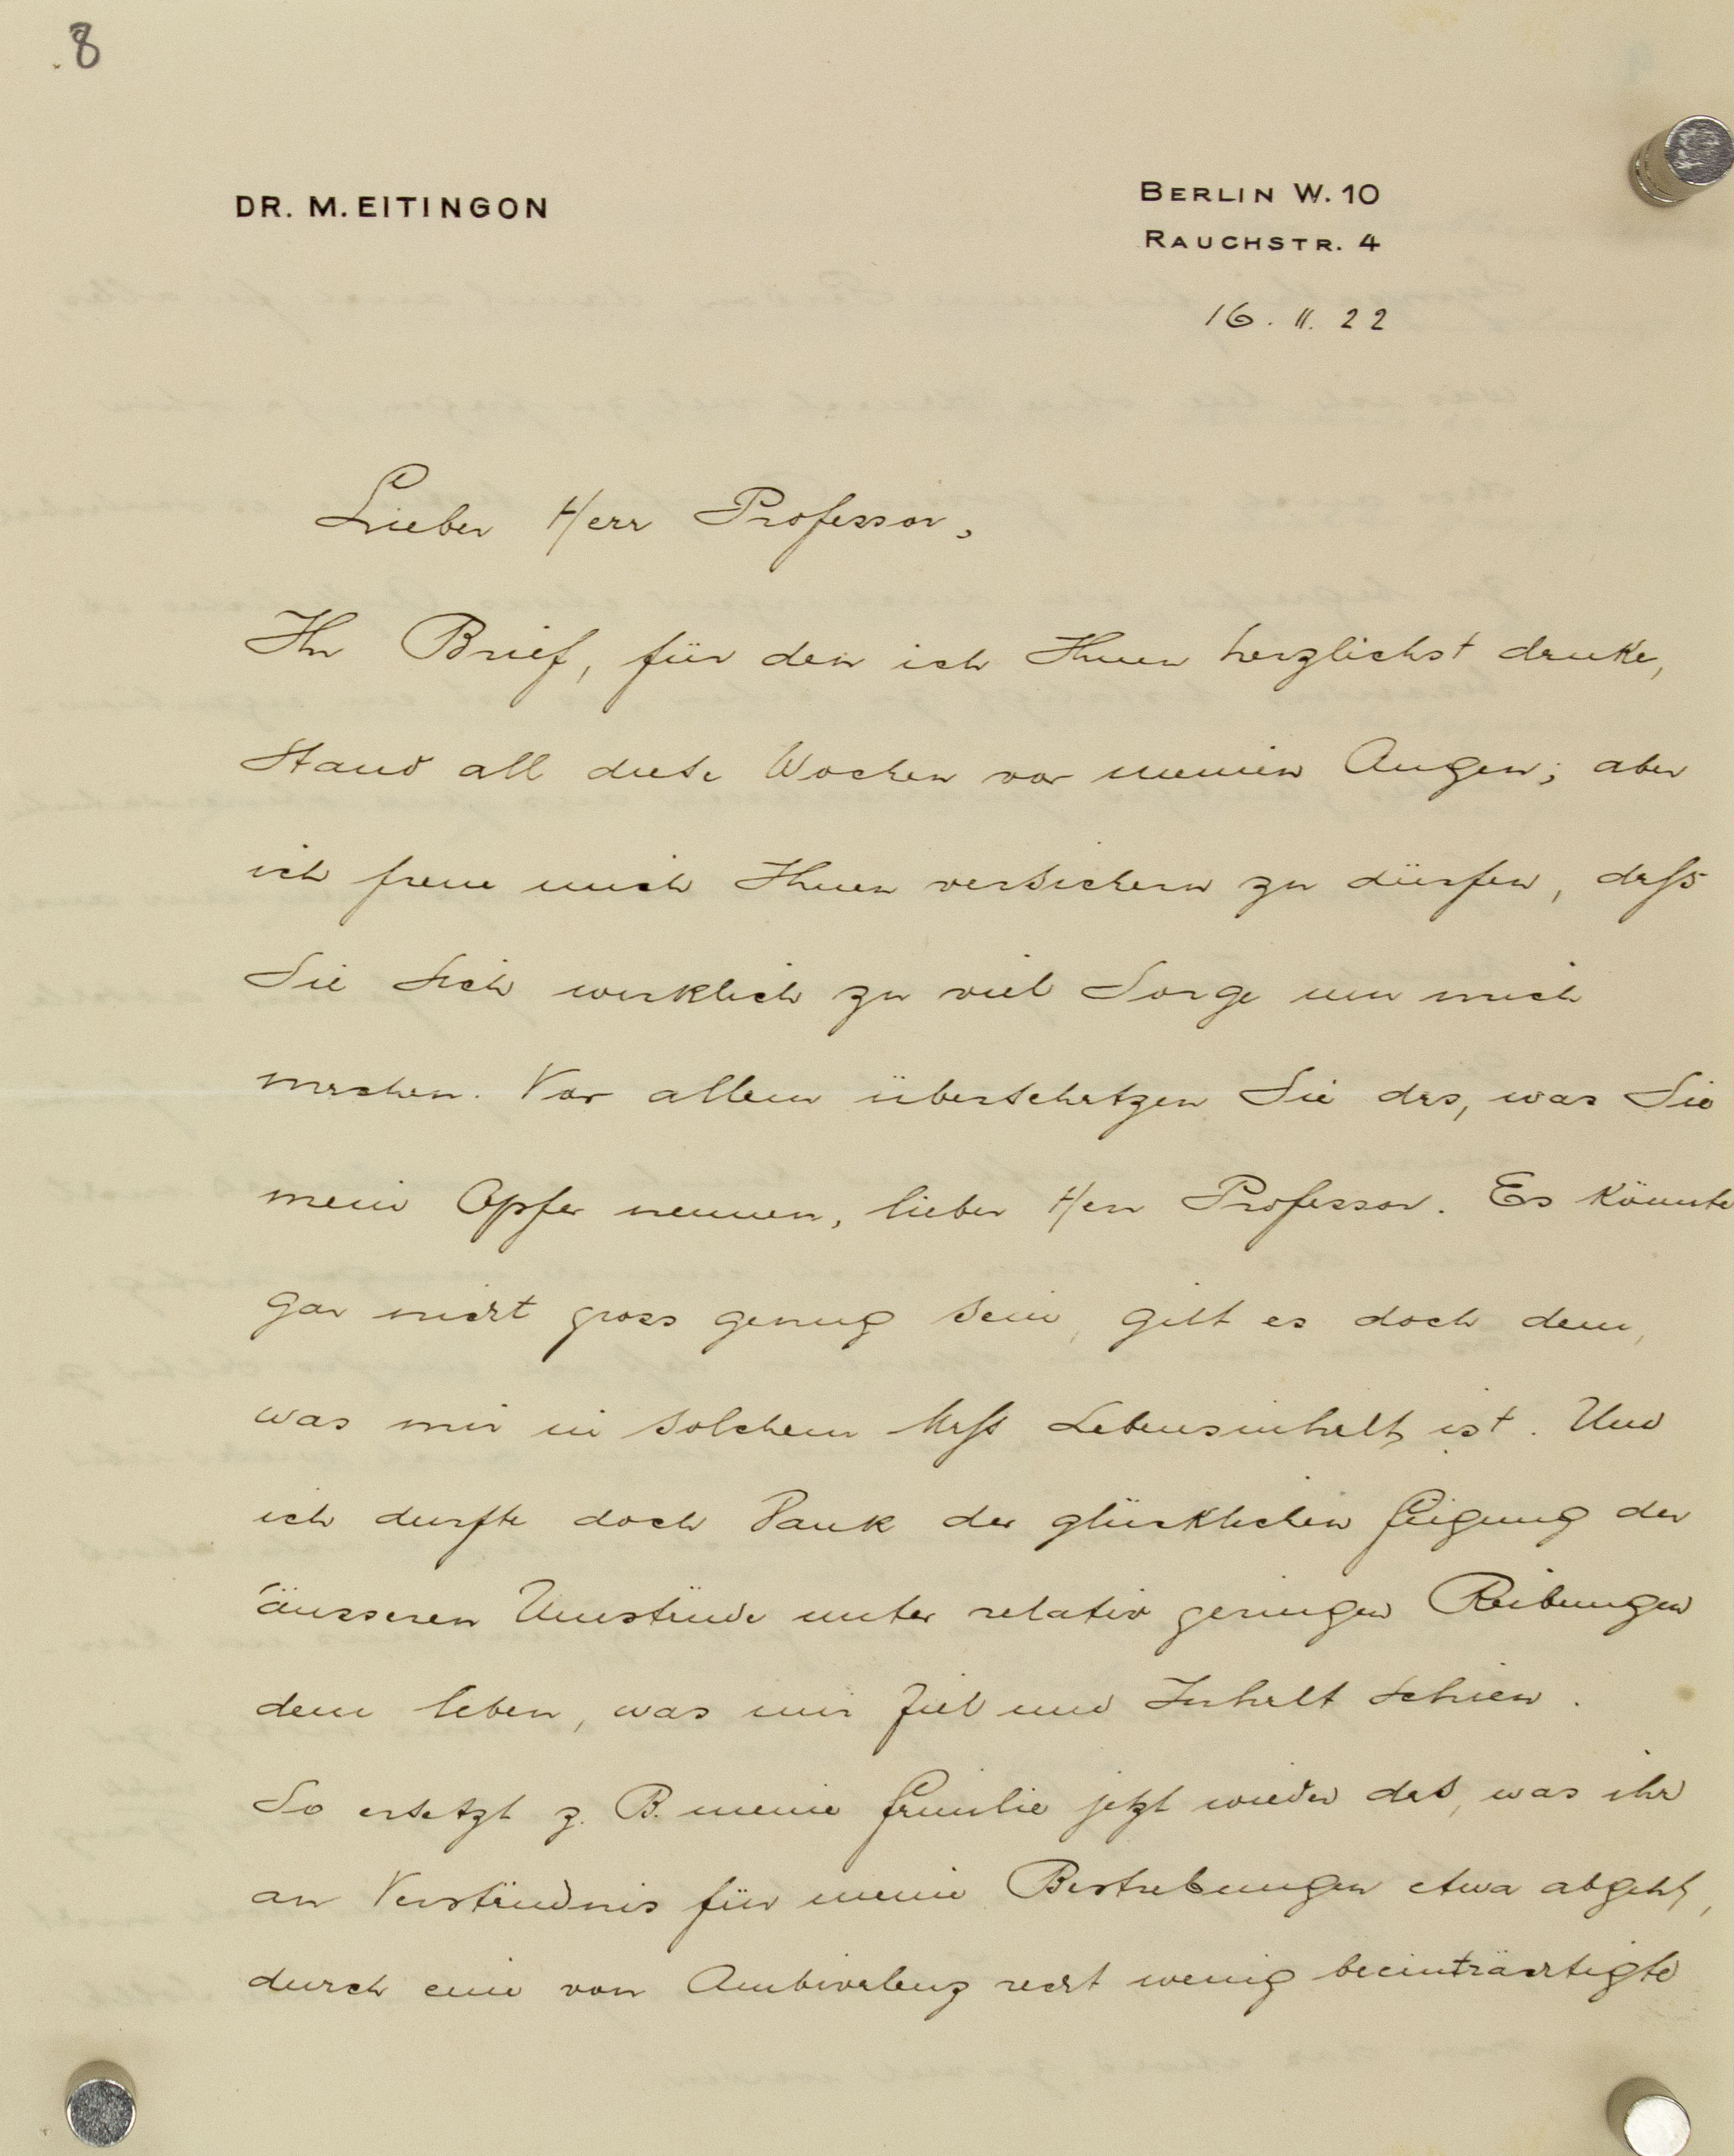 8
DR. M. EITINGON
BERLIN W. 10
RAUCHSTR. 4
16. II. 22
Lieber Herr Professor,
Ihr Brief, für den ich Ihnen herzlichst danke,
stand all diese Wochen vor meinen Augen; aber
ich freue mich Ihnen versichern zu dürfen, dass
Sie sich wirklich zu viel Sorge um mich
machen. Vor allem überschätzen Sie das, was Sie
mein Opfer nennen, lieber Herr Professor. Es könnte
gar nicht gross genug sein, gilt es doch dem,
was mir in solchem Mass Lebensinhalt ist. Und
ich durfte doch Dank der glücklichen Fügung der
äusseren Umstände unter relativ geringen Reibungen
dem leben, was mir Ziel und Inhalt schien.
So ersetzt z. B. meine Familie jetzt wieder das, was ihr
an Verständnis für meine Bestrebungen etwa abgeht,
durch eine von Ambivalenz recht wenig beeinträchtigte